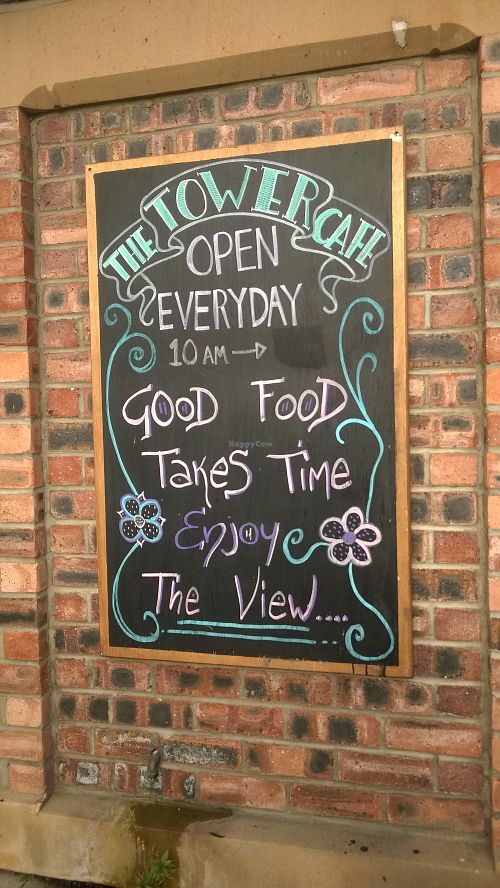 THE TOWER CAFE
OPEN
EVERYDAY
10 AM →
GOOD FOOD
TAKES TIME
ENJOY
THE VIEW....
HappyCow